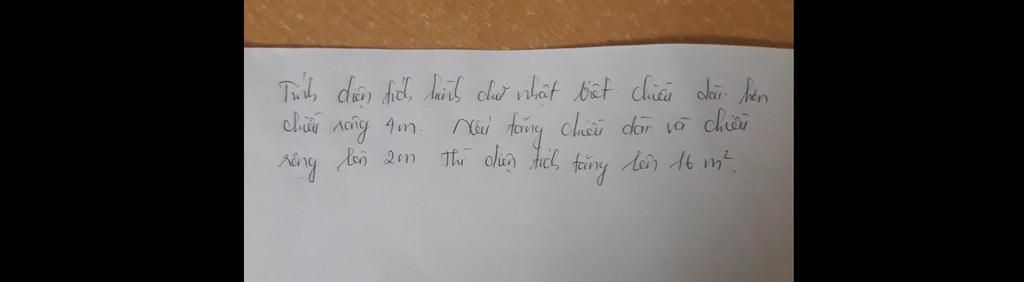 Tính diện tích hình chữ nhật biết chiều dài hơn
chiều rộng 4m. Nếu tăng chiều dài và chiều
rộng lên 2m thì diện tích tăng lên 16 m².